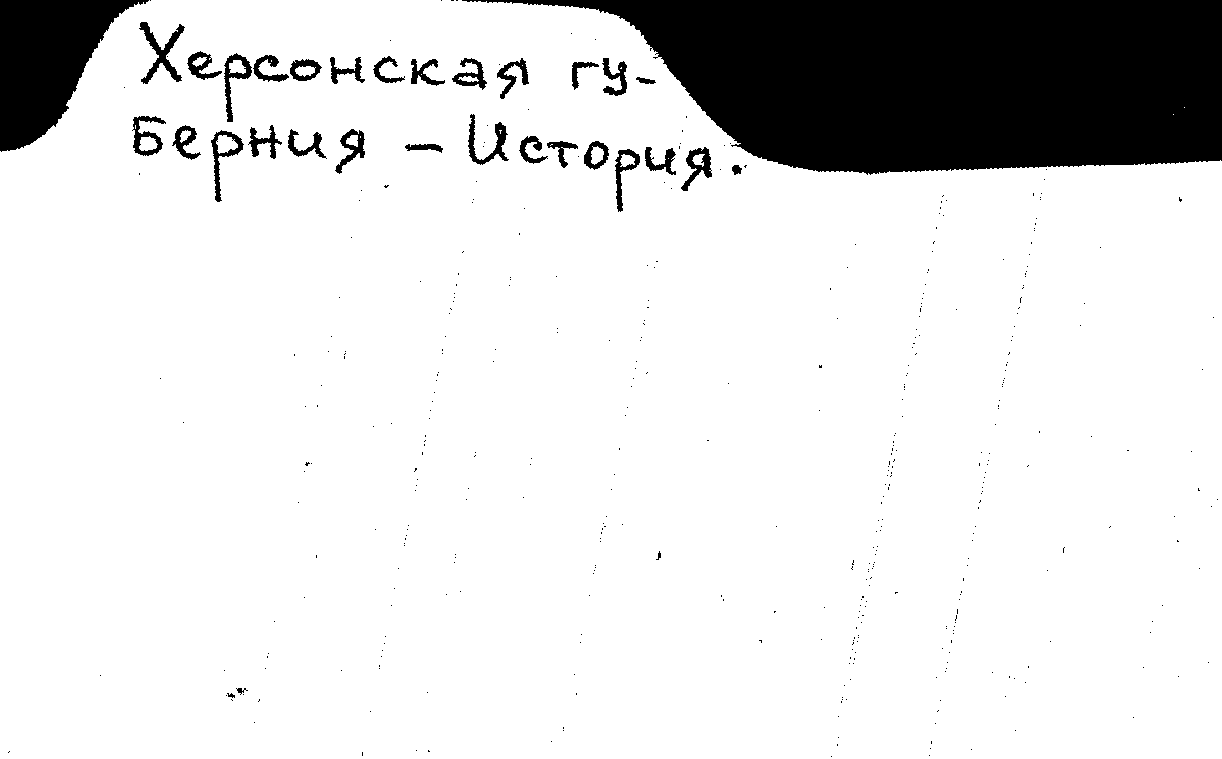 Херсонская гу-
берния – История.